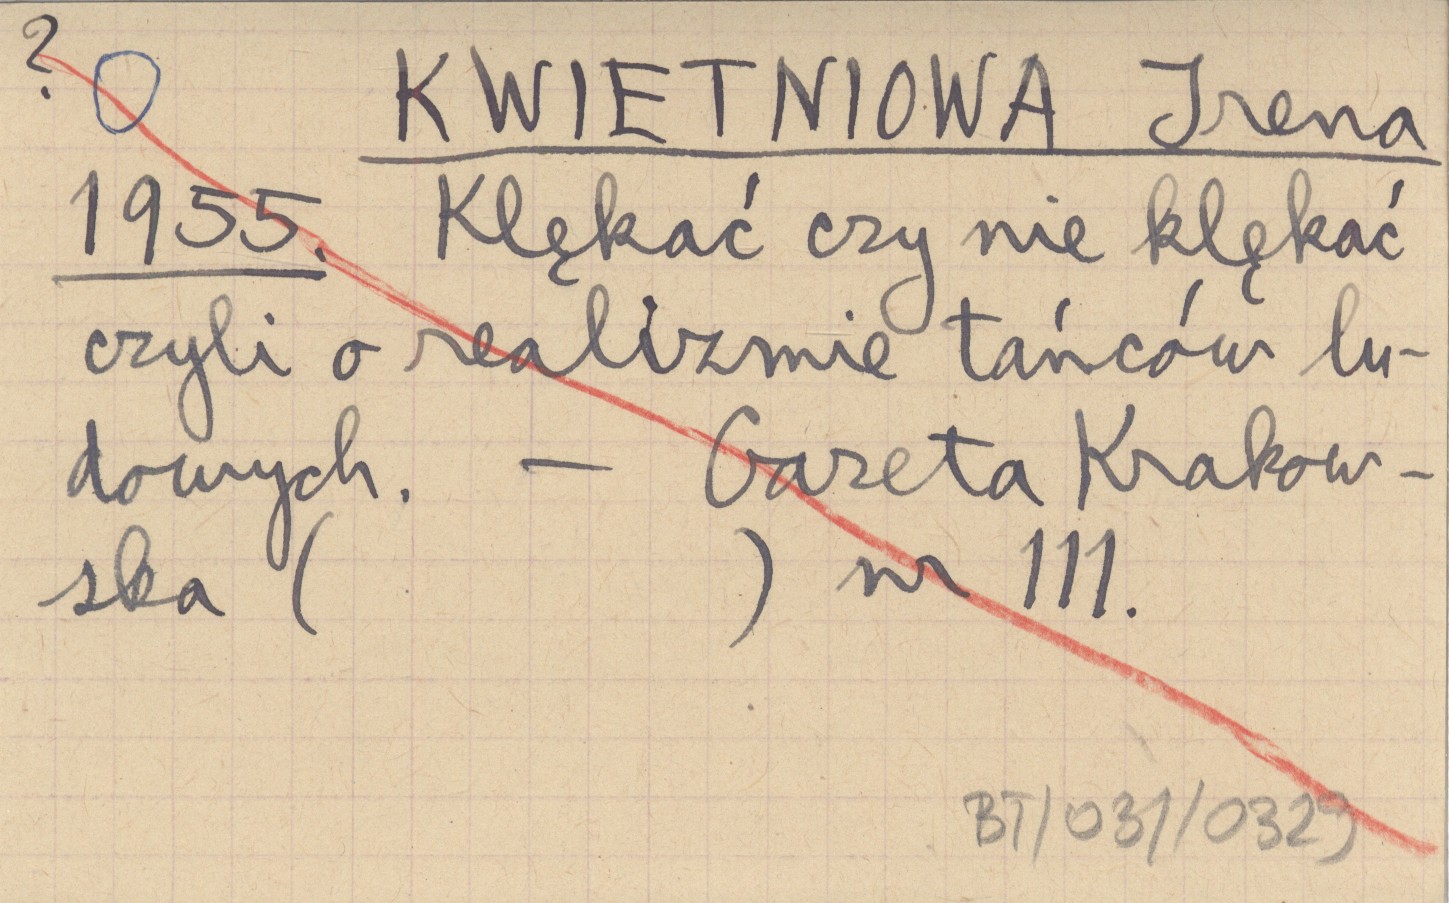 ?
KWIETNIOWA Irena
1955. Klękać czy nie klękać
czyli o realizmie tańców lu-
dowych. — Gazeta Krakow-
ska (          ) nr 111.
BT/031/0329